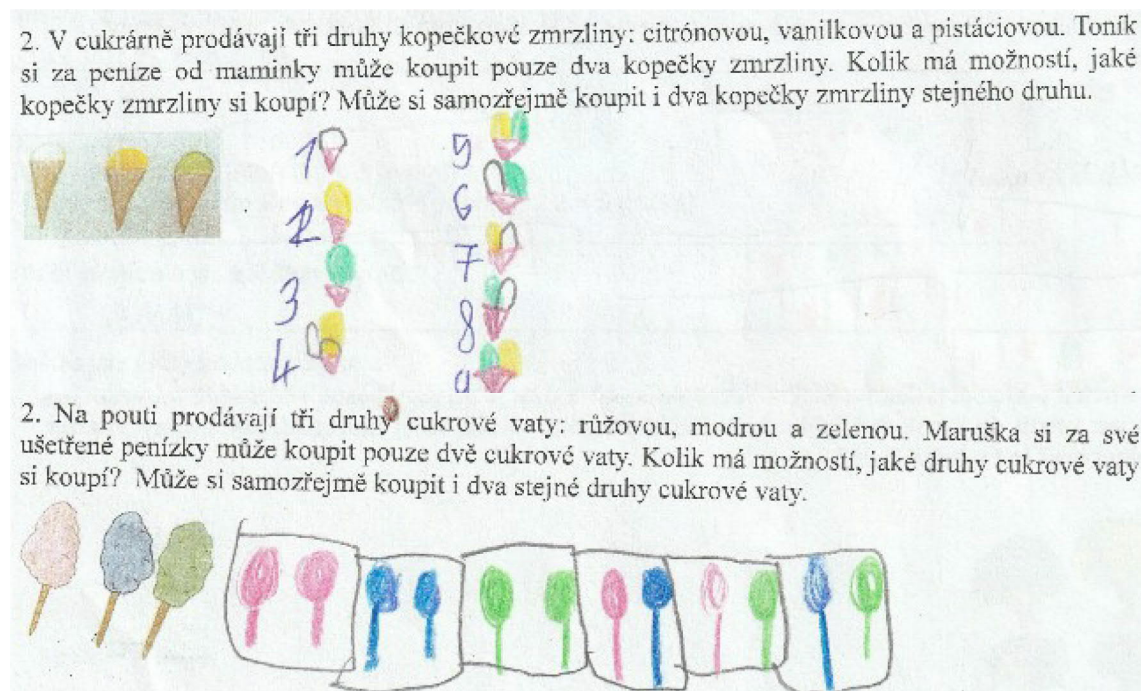 2. V cukrárně prodávají tři druhy kopečkové zmrzliny: citrónovou, vanilkovou a pistáciovou. Toník
si za peníze od maminky může koupit pouze dva kopečky zmrzliny. Kolik má možností, jaké
kopečky zmrzliny si koupí? Může si samozřejmě koupit i dva kopečky zmrzliny stejného druhu.
1
2
3
4
5
6
7
8
9
2. Na pouti prodávají tři druhy cukrové vaty: růžovou, modrou a zelenou. Maruška si za své
ušetřené penízky může koupit pouze dvě cukrové vaty. Kolik má možností, jaké druhy cukrové vaty
si koupí? Může si samozřejmě koupit i dva stejné druhy cukrové vaty.